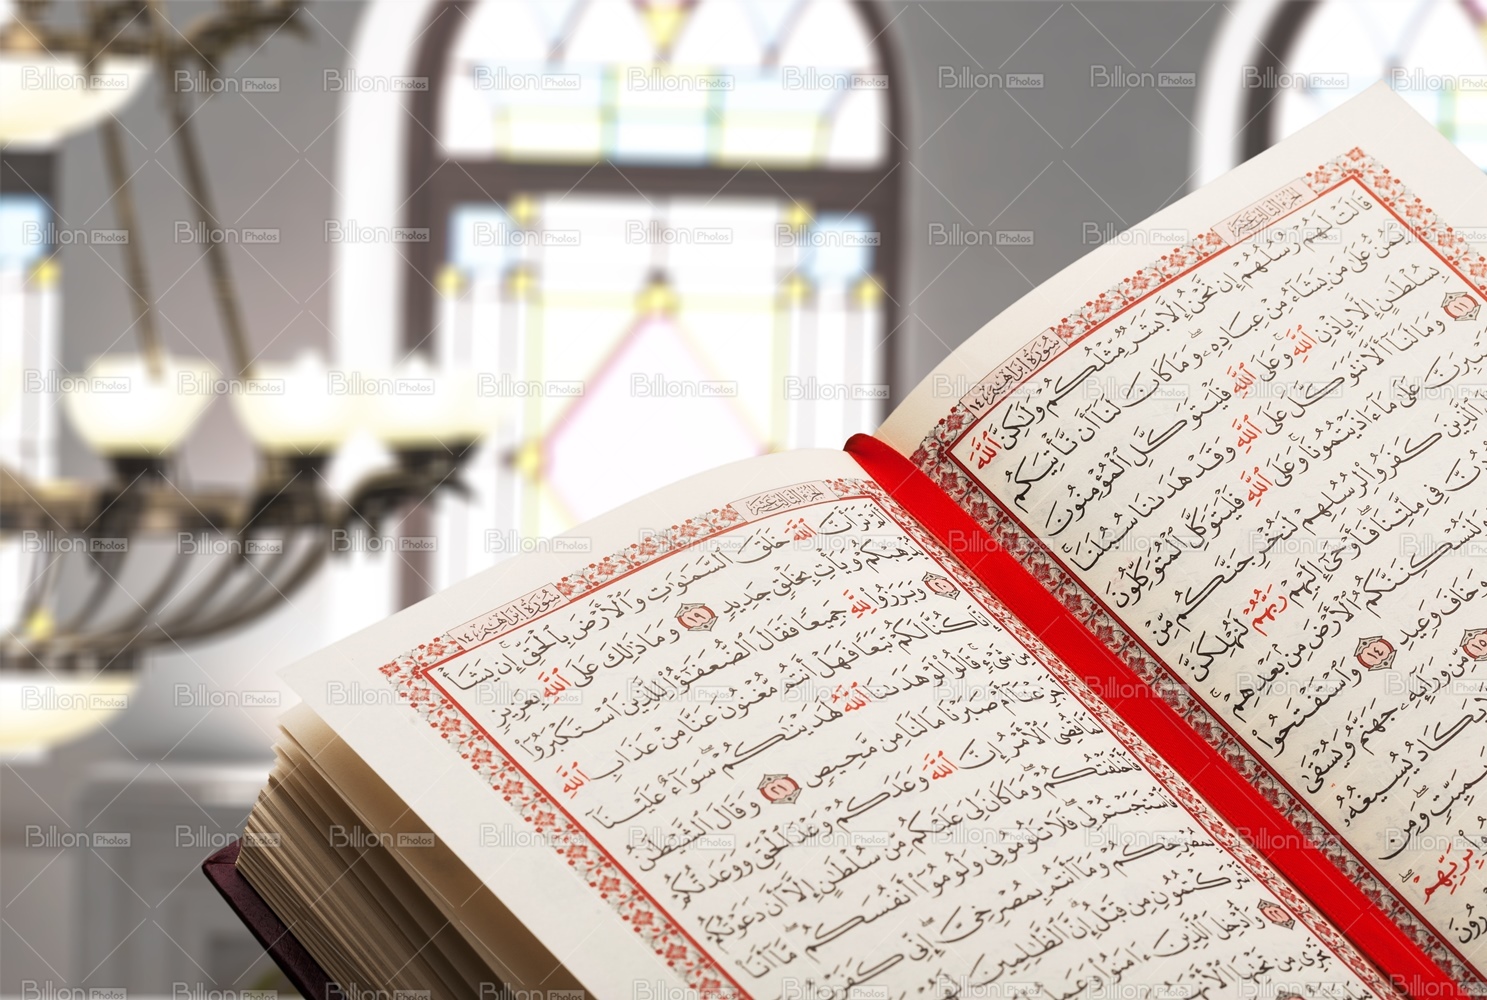 الجزء الثالث عشر
سورة إبراهيم ١٤
قَالَتْ لَهُمْ رُسُلُهُمْ إِن نَّحْنُ إِلَّا بَشَرٌ مِّثْلُكُمْ وَلَٰكِنَّ ٱللَّهَ
يَمُنُّ عَلَىٰ مَن يَشَآءُ مِنْ عِبَادِهِۦ وَمَا كَانَ لَنَآ أَن نَّأْتِيَكُم
بِسُلْطَٰنٍ إِلَّا بِإِذْنِ ٱللَّهِ وَعَلَى ٱللَّهِ فَلْيَتَوَكَّلِ ٱلْمُؤْمِنُونَ
١١ وَمَا لَنَآ أَلَّا نَتَوَكَّلَ عَلَى ٱللَّهِ وَقَدْ هَدَىٰنَا سُبُلَنَا
عَلَىٰ مَآ ءَاذَيْتُمُونَا وَعَلَى ٱللَّهِ فَلْيَتَوَكَّلِ ٱلْمُتَوَكِّلُونَ
ٱلَّذِينَ كَفَرُوا۟ لِرُسُلِهِمْ لَنُخْرِجَنَّكُم مِّنْ
فِى مِلَّتِنَا فَأَوْحَىٰٓ إِلَيْهِمْ رَبُّهُمْ لَنُهْلِكَنَّ
وَلَنُسْكِنَنَّكُمُ ٱلْأَرْضَ مِنۢ بَعْدِهِمْ
خَافَ وَعِيدِ ١٤ وَٱسْتَفْتَحُوا۟
١٥ مِّن وَرَآئِهِۦ جَهَنَّمُ وَيُسْقَىٰ
يَكَادُ يُسِيغُهُۥ
بِمَيِّتٍ وَمِن
بِرَبِّهِمْ
الجزء الثالث عشر
سورة إبراهيم ١٤
أَلَمْ تَرَ أَنَّ ٱللَّهَ خَلَقَ ٱلسَّمَٰوَٰتِ وَٱلْأَرْضَ بِٱلْحَقِّ إِن يَشَأْ
يُذْهِبْكُمْ وَيَأْتِ بِخَلْقٍ جَدِيدٍ ١٩ وَمَا ذَٰلِكَ عَلَى ٱللَّهِ بِعَزِيزٍ
٢٠ وَبَرَزُوا۟ لِلَّهِ جَمِيعًا فَقَالَ ٱلضُّعَفَٰٓؤُا۟ لِلَّذِينَ ٱسْتَكْبَرُوٓا۟
إِنَّا كُنَّا لَكُمْ تَبَعًا فَهَلْ أَنتُم مُّغْنُونَ عَنَّا مِنْ عَذَابِ ٱللَّهِ
مِن شَىْءٍ قَالُوا۟ لَوْ هَدَىٰنَا ٱللَّهُ لَهَدَيْنَٰكُمْ سَوَآءٌ عَلَيْنَآ
أَجَزِعْنَآ أَمْ صَبَرْنَا مَا لَنَا مِن مَّحِيصٍ ٢١ وَقَالَ ٱلشَّيْطَٰنُ
لَمَّا قُضِىَ ٱلْأَمْرُ إِنَّ ٱللَّهَ وَعَدَكُمْ وَعْدَ ٱلْحَقِّ وَوَعَدتُّكُمْ
فَأَخْلَفْتُكُمْ وَمَا كَانَ لِىَ عَلَيْكُم مِّن سُلْطَٰنٍ إِلَّآ أَن دَعَوْتُكُمْ
فَٱسْتَجَبْتُمْ لِى فَلَا تَلُومُونِى وَلُومُوٓا۟ أَنفُسَكُم مَّآ أَنَا۠
بِمُصْرِخِكُمْ وَمَآ أَنتُم بِمُصْرِخِىَّ إِنِّى كَفَرْتُ
أَشْرَكْتُمُونِ مِن قَبْلُ إِنَّ ٱلظَّٰلِمِينَ
٢٢ وَأُدْخِلَ ٱلَّذِينَ ءَامَنُوا۟ وَعَمِلُوا۟
تَجْرِى مِن تَحْتِهَا ٱلْأَنْهَٰرُ